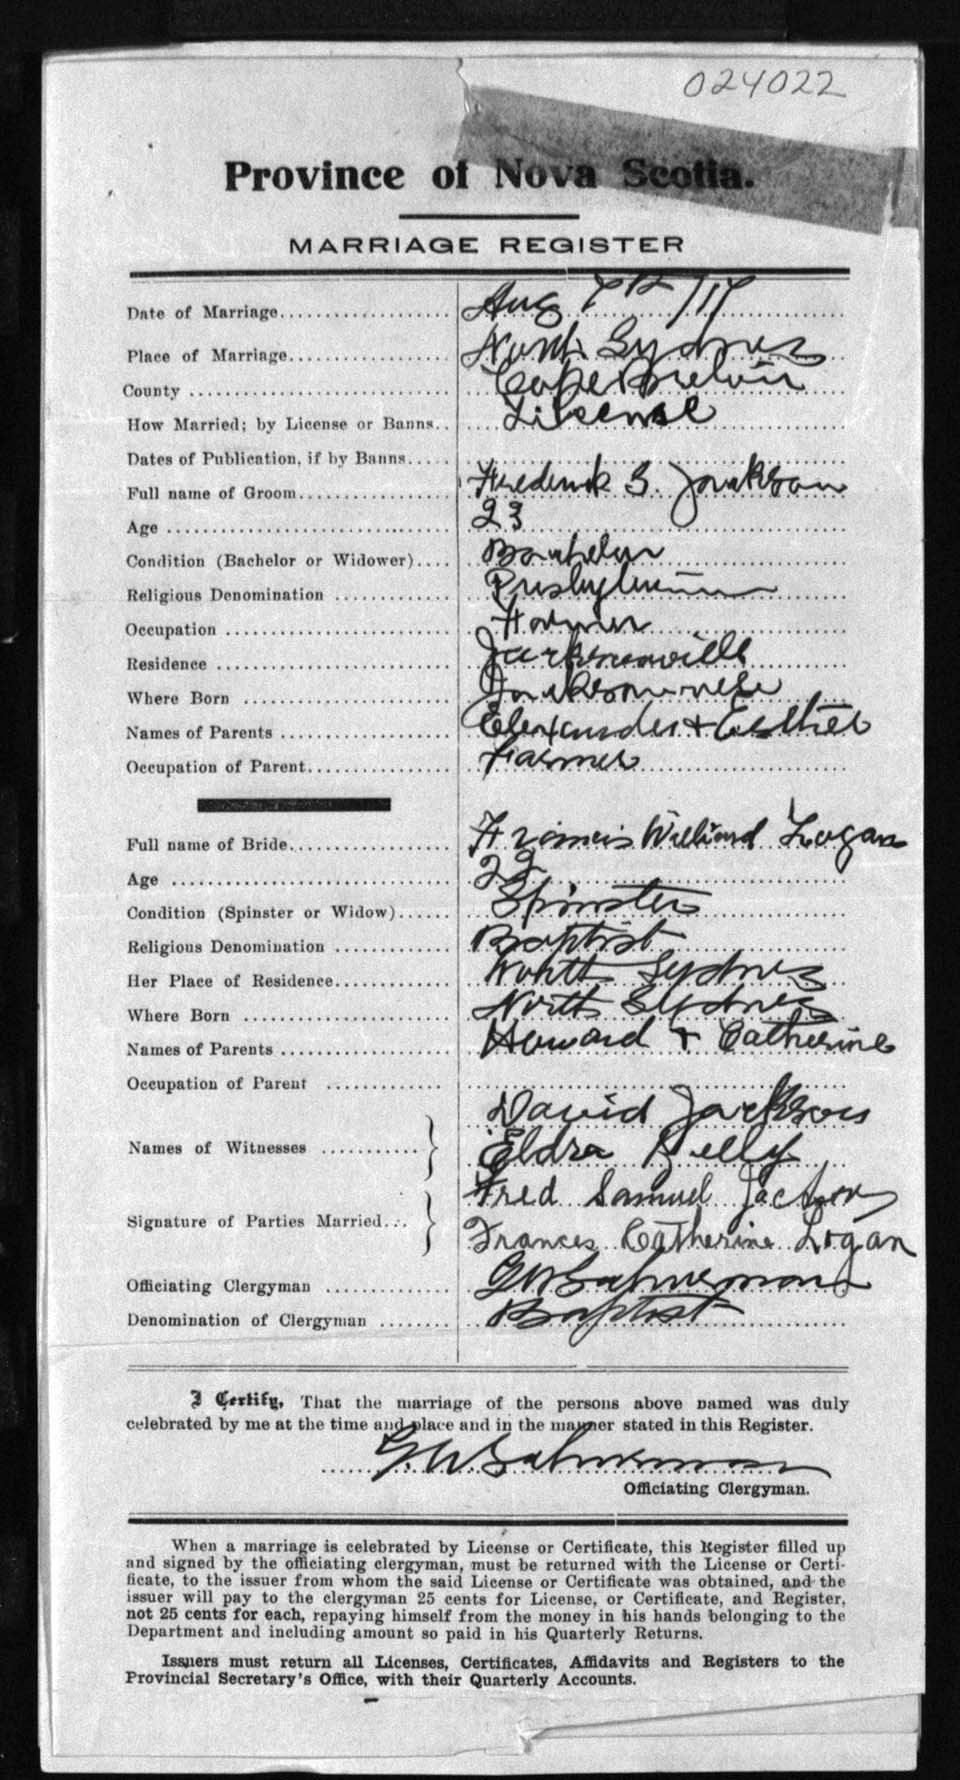 024022
Province of Nova Scotia.
MARRIAGE REGISTER
Date of Marriage Aug 7th /17
Place of Marriage North Sydney
County Cape Breton
How Married; by License or Banns License
Dates of Publication, if by Banns
Full name of Groom Frederick S. Jackson
Age 23
Condition (Bachelor or Widower) Bachelor
Religious Denomination Presbyterian
Occupation Farmer
Residence Jacksonville
Where Born Jacksonville
Names of Parents Elexander + Esther
Occupation of Parent Farmer
Full name of Bride Francis Willard Logan
Age 22
Condition (Spinster or Widow) Spinster
Religious Denomination Baptist
Her Place of Residence North Sydney
Where Born North Sydney
Names of Parents Howard + Catherine
Occupation of Parent
David Jackson
Names of Witnesses
Eldra Kelly
Fred Samuel Jackson
Signature of Parties Married
Frances Catherine Logan
Officiating Clergyman G W
Denomination of Clergyman Baptist
I Certify, That the marriage of the persons above named was duly
celebrated by me at the time and place and in the manner stated in this Register.
G. W.
Officiating Clergyman.
When a marriage is celebrated by License or Certificate, this Register filled up
and signed by the officiating clergyman, must be returned with the License or Certi-
ficate, to the issuer from whom the said License or Certificate was obtained, and the
issuer will pay to the clergyman 25 cents for License, or Certificate, and Register,
not 25 cents for each, repaying himself from the money in his hands belonging to the
Department and including amount so paid in his Quarterly Returns.
Issuers must return all Licenses, Certificates, Affidavits and Registers to the
Provincial Secretary's Office, with their Quarterly Accounts.